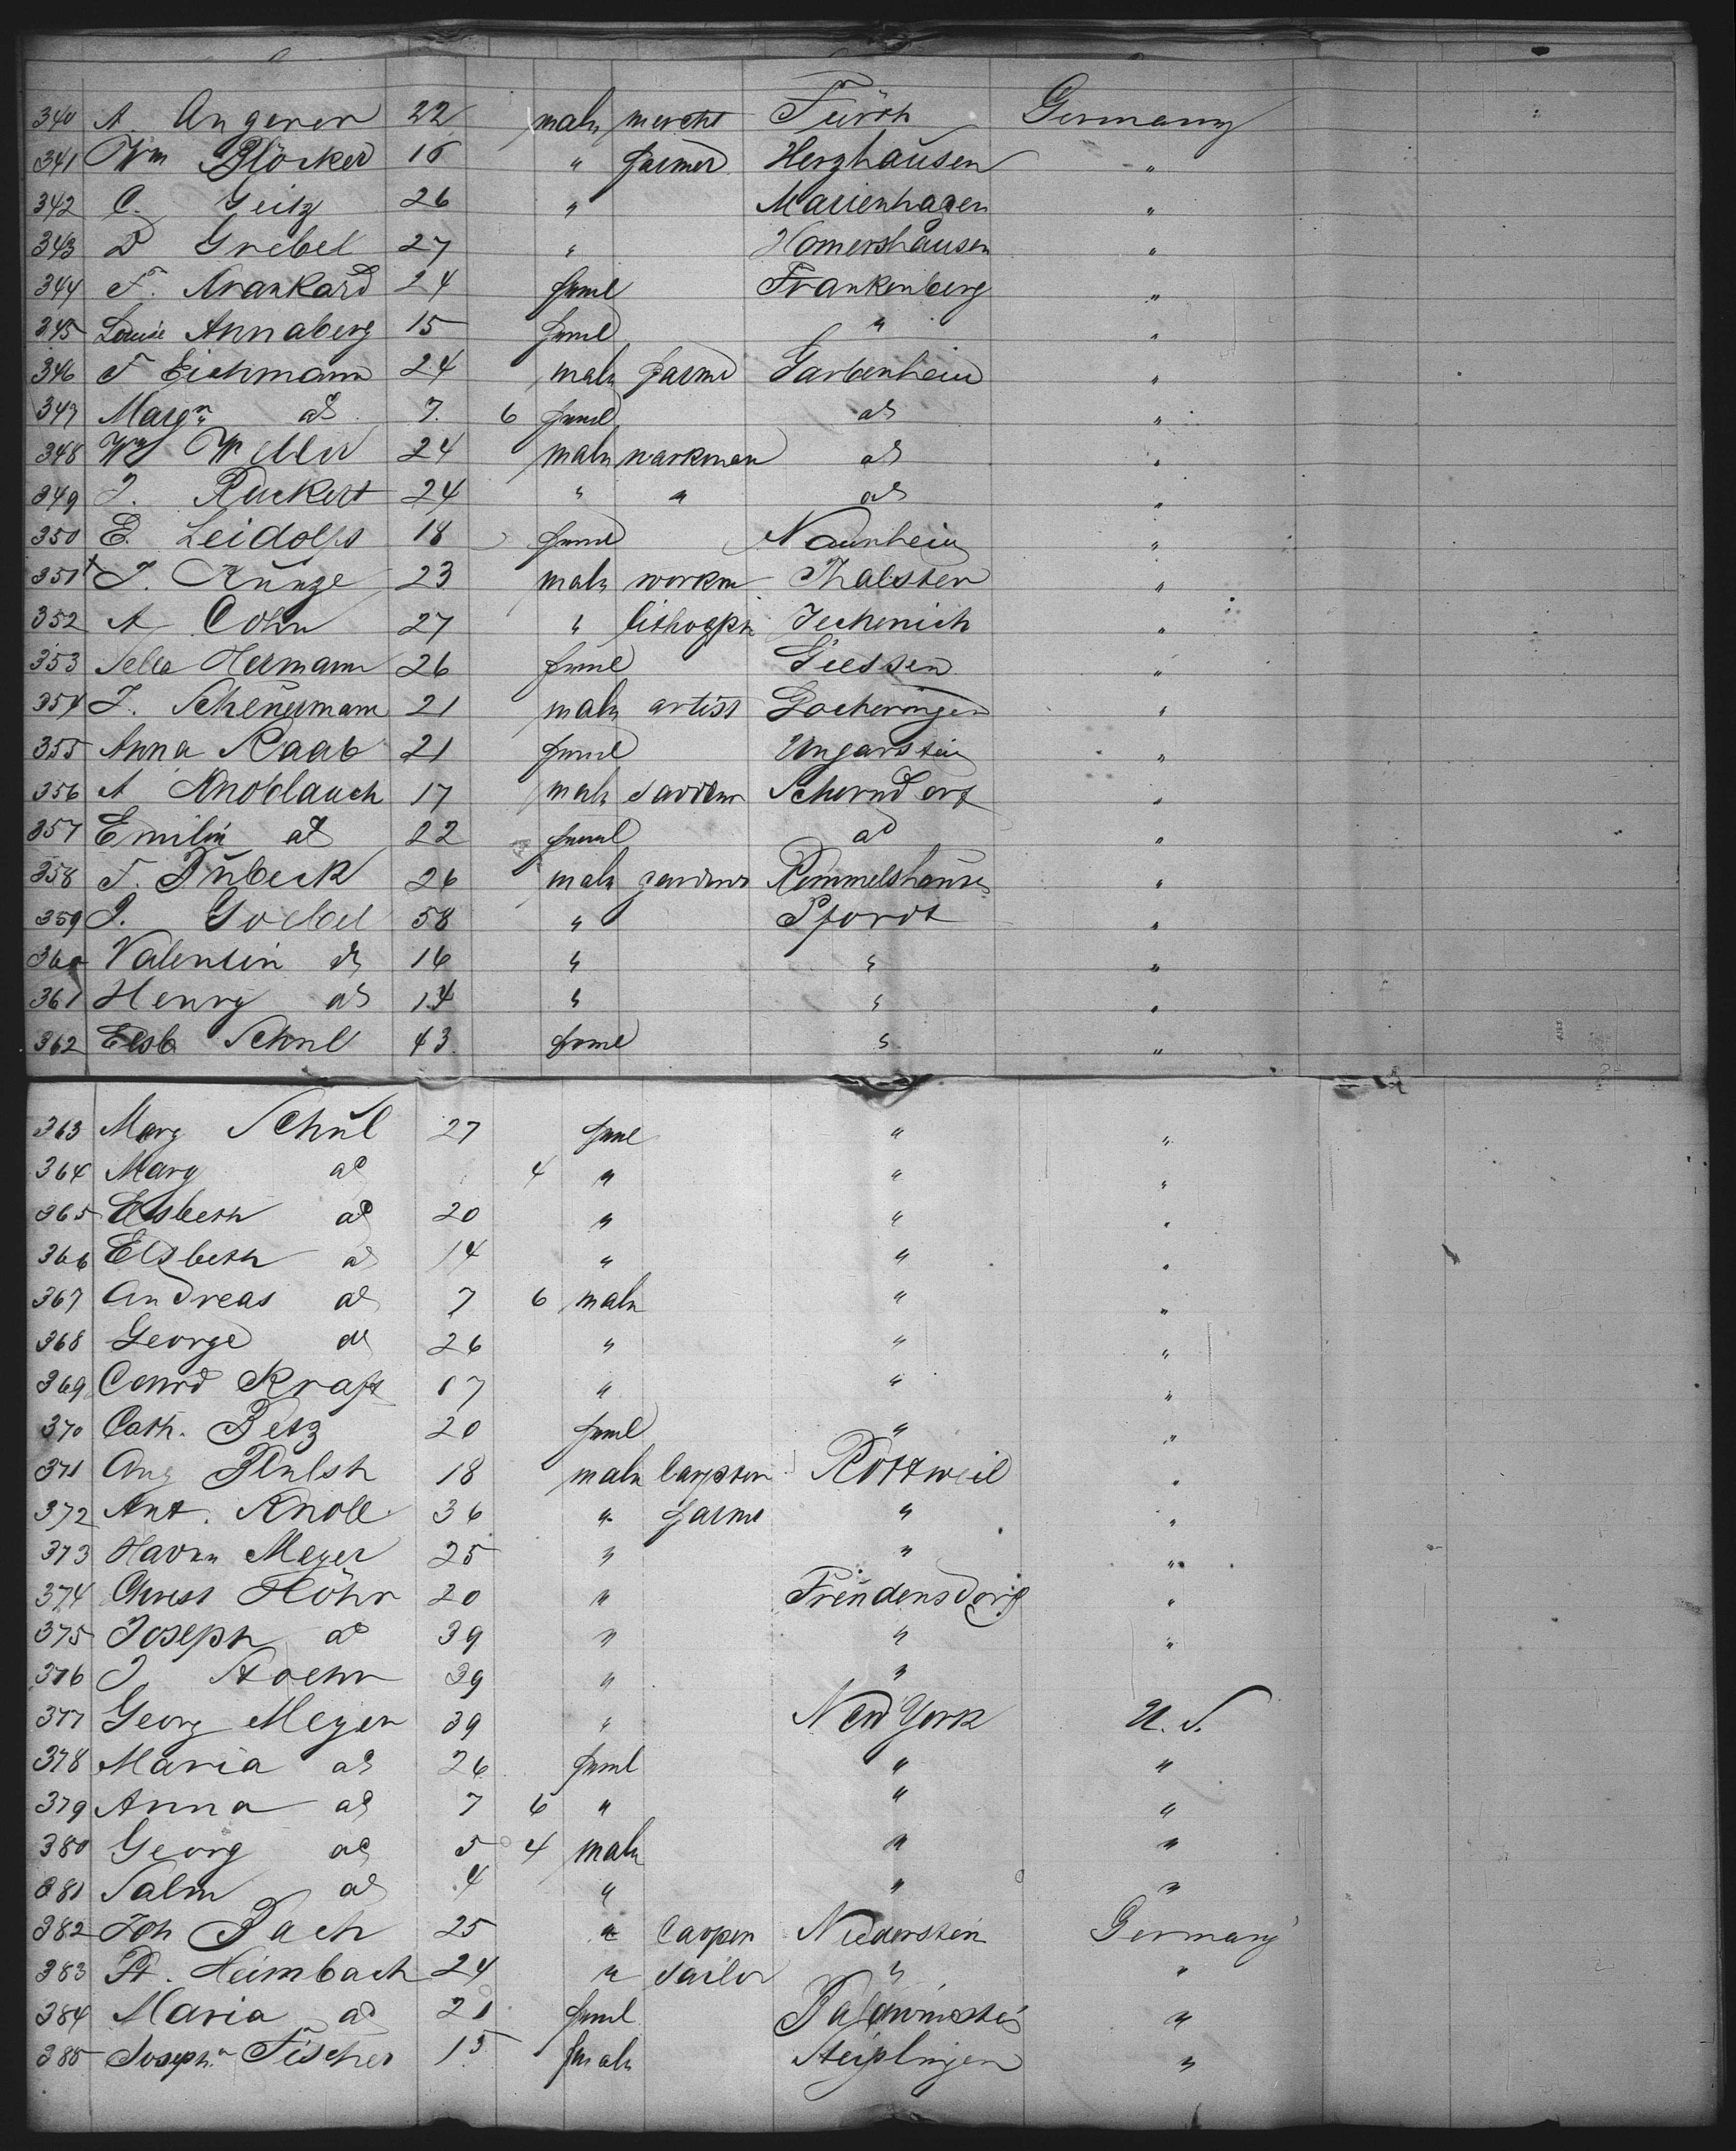 340 A. Angerer 22 male mercht Fürth Germany
341 Wm Blöcker 16 " farmer Herzhausen "
342 C. Geitz 26 " Marienhagen "
343 D Grebel 27 " Homershausen "
344 F. 24 feml Frankenberg "
345 Louise Annaberg 15 feml " "
346 F Eichmann 24 male farmr Garbenheim "
347 Margn do 7 6 feml do "
348 Wm Weller 24 male workman do "
349 J. Ruckert 24 " " do "
350 E. Leidolfs 18 feml Naunheim "
351 J. Kunze 23 male workm Thalster "
352 A Cohn 27 " lithogph Jechenich "
353 Hermann 26 feml Giessen "
354 J. Scheuermann 21 male artist "
355 Anna Raab 21 feml Ungarstein "
356 A Knoblauch 17 male Schorndorf "
357 Emilie do 22 feml do "
358 F. Dubeck 26 male gardenr Rommelshausen "
359 J. Goebel 58 " Pfordt "
360 Valentin do 16 " " "
361 Henry do 14 " " "
362 Elsb Schul 43 feml " "
363 Marg Schul 27 feml " "
364 Marg do 4 " " "
365 Elsbeth do 20 " " "
366 Elsbeth do 14 " " "
367 Andreas do 7 6 male " "
368 George do 26 " " "
369 Conrd Kraft 17 " " "
370 Cath. Betz 20 feml " "
371 Aug 18 male carpter Rottweil "
372 Ant. Knoll 36 " farmr " "
373 Meyer 25 " " "
374 Christ Höhr 20 " Freudensdorf "
375 Joseph do 39 " " "
376 J 39 " " "
377 Georg Meyer 39 " New York U. S.
378 Maria do 26 feml " "
379 Anna do 7 6 " " "
380 Georg do 5 4 male " "
381 Salm do 4 " " "
382 Joh Bach 25 " carpen Niederstein Germany
383 Pt. Heimbach 24 " sailor " "
384 Maria do 21 feml "
385 Josephn Fischer 15 fmale "